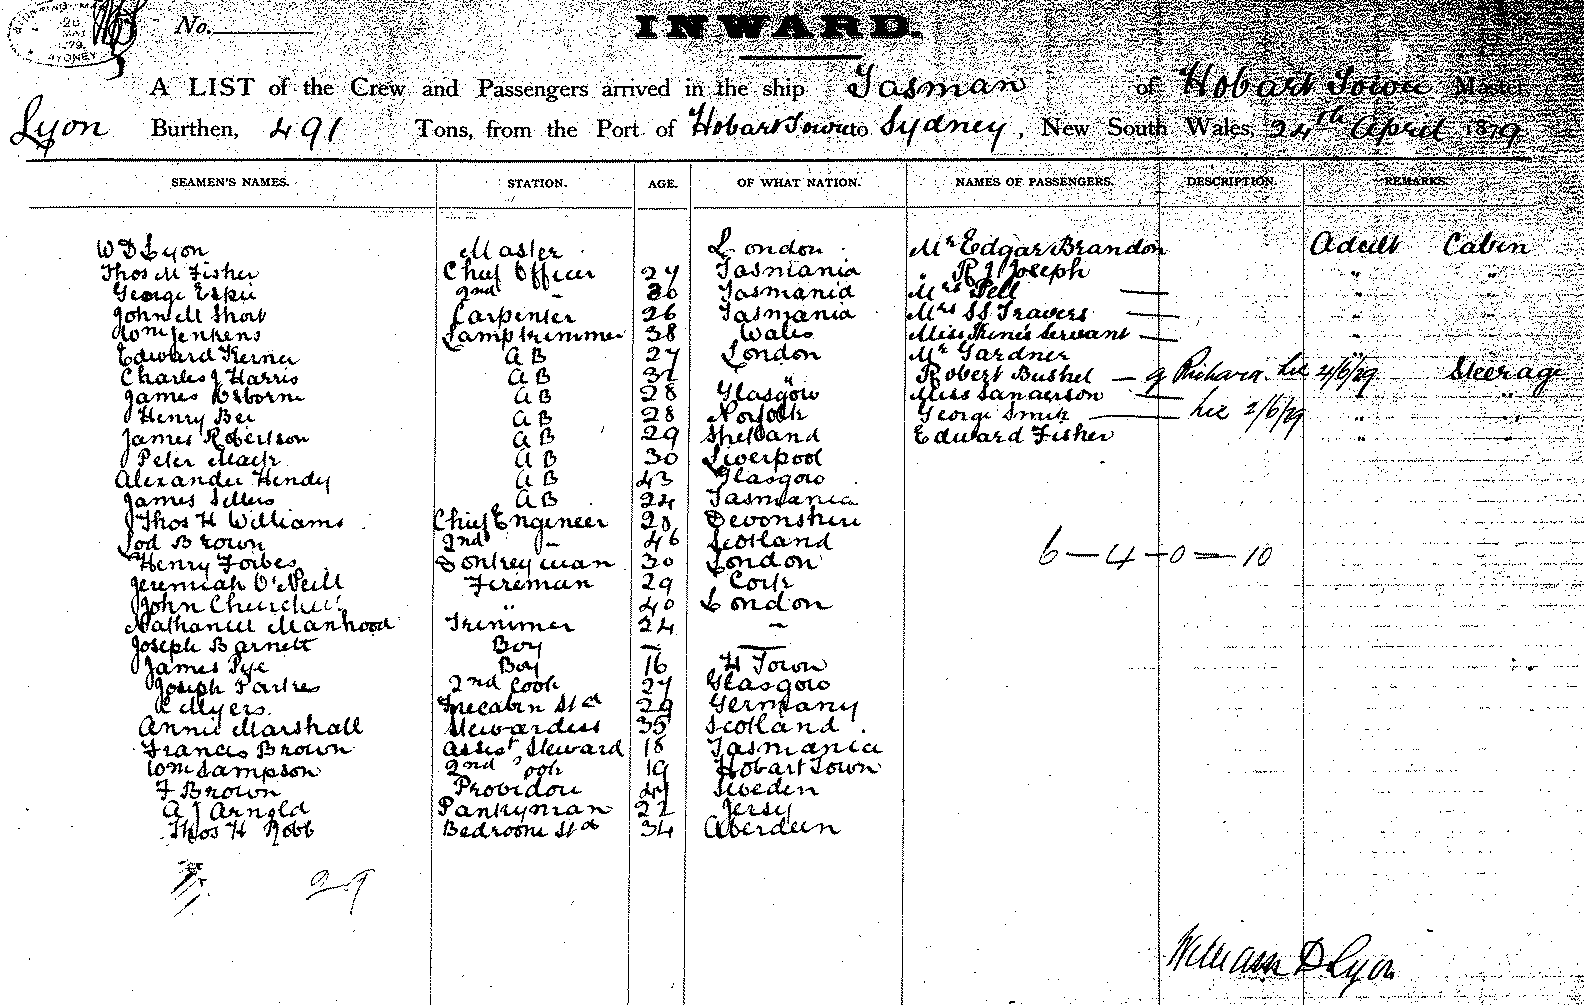 No.
INWARD.
A LIST of the Crew and Passengers arrived in the ship Tasman of Hobart Town Master
Lyon Burthen, 491 Tons, from the Port of Hobart Town to Sydney, New South Wales, 24th April 1879
SEAMEN'S NAMES. STATION. AGE. OF WHAT NATION. NAMES OF PASSENGERS. DESCRIPTION. REMARKS.
W D Lyon Master London Mr Edgar Brandon Adult Cabin
Thos M Fisher Chief Officer 27 Tasmania " R J Joseph " "
George Espie 2nd " 30 Tasmania Mrs Pell — " "
John M Short Carpenter 26 Tasmania Mrs SS Travers — " "
Wm Jenkens Lamptrimmer 38 Wales Miss Servant — " "
Edward Kerner A B 27 London Mr Gardner
Charles J Harris A B 37 " Robert Bushel — 2/6/79 Steerage
James Osborne A B 28 Glasgow Miss Sanderson — " "
Henry Bee A B 28 Norfolk George Smith — 2/6/79 " "
James Robertson A B 29 Shetland Edward Fisher " "
Peter Mack A B 30 Liverpool
Alexander Hendy A B 43 Glasgow
James Sellers A B 24 Tasmania
Thos H Williams Chief Engineer 28 Devonshire
Brown 2nd " 46 Scotland
6 — 4 — 0 — 10
Henry Forbes 30 London
Jeremiah O'Neill Fireman 29 Cork
John Churchill " 40 London
Nathaniel Manhood Trimmer 24 "
Joseph Barnett Boy — —
James Pye Boy 16 H Town
Joseph Parkes 2nd Cook 27 Glasgow
Myers Forecabin Std 29 Germany
Annie Marshall Stewardess 35 Scotland
Francis Brown Assist Steward 18 Tasmania
Wm Sampson 2nd Cook 19 Hobart Town
F Brown Providore 49 Sweden
A J Arnold Pantryman 22 Jersy
Thos H Robb Bedroom Std 34 Aberdeen
29
William D Lyon